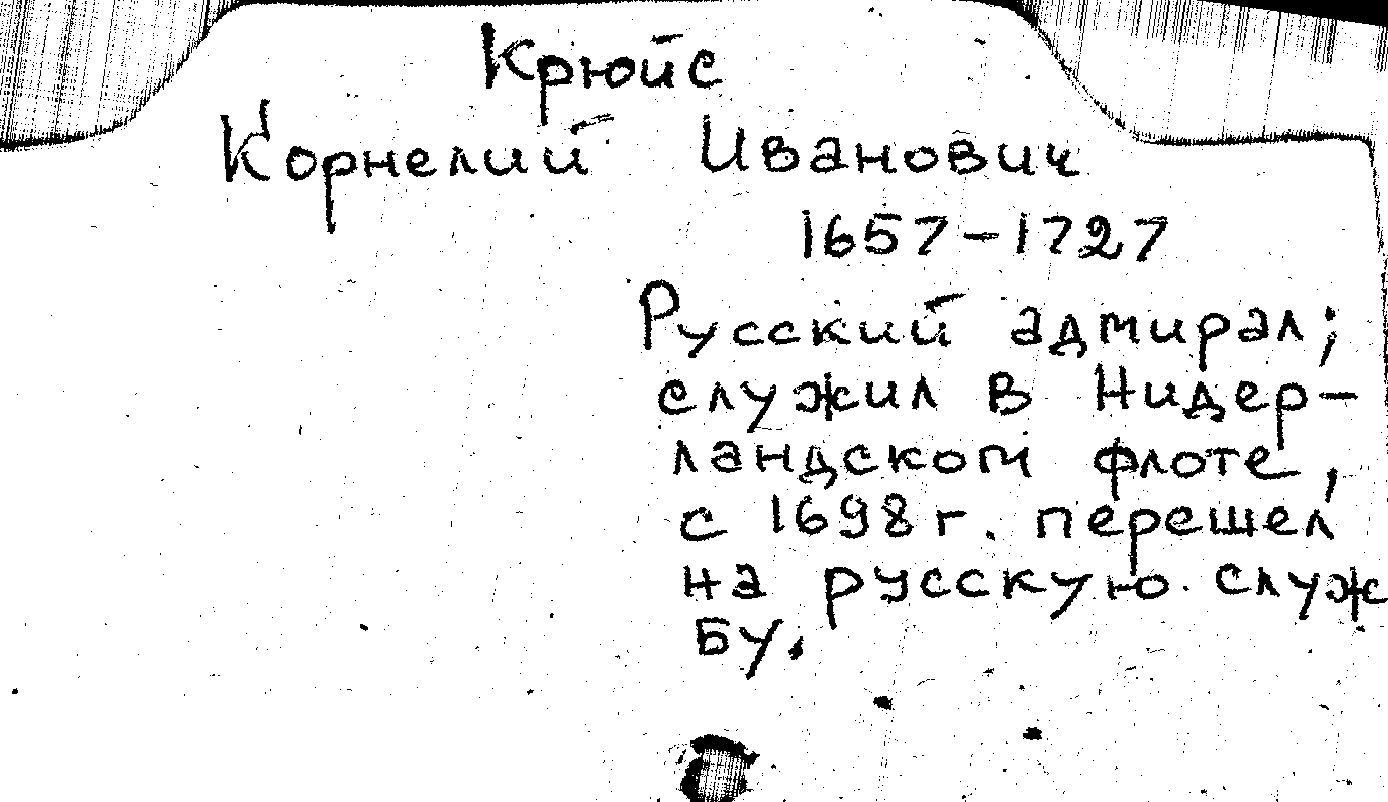 Крюйс
Корнелий Иванович
1657-1727
Русский адмирал;
служил в Нидер-
ландском флоте,
с 1698 г. перешел
на русскую служ
бу.